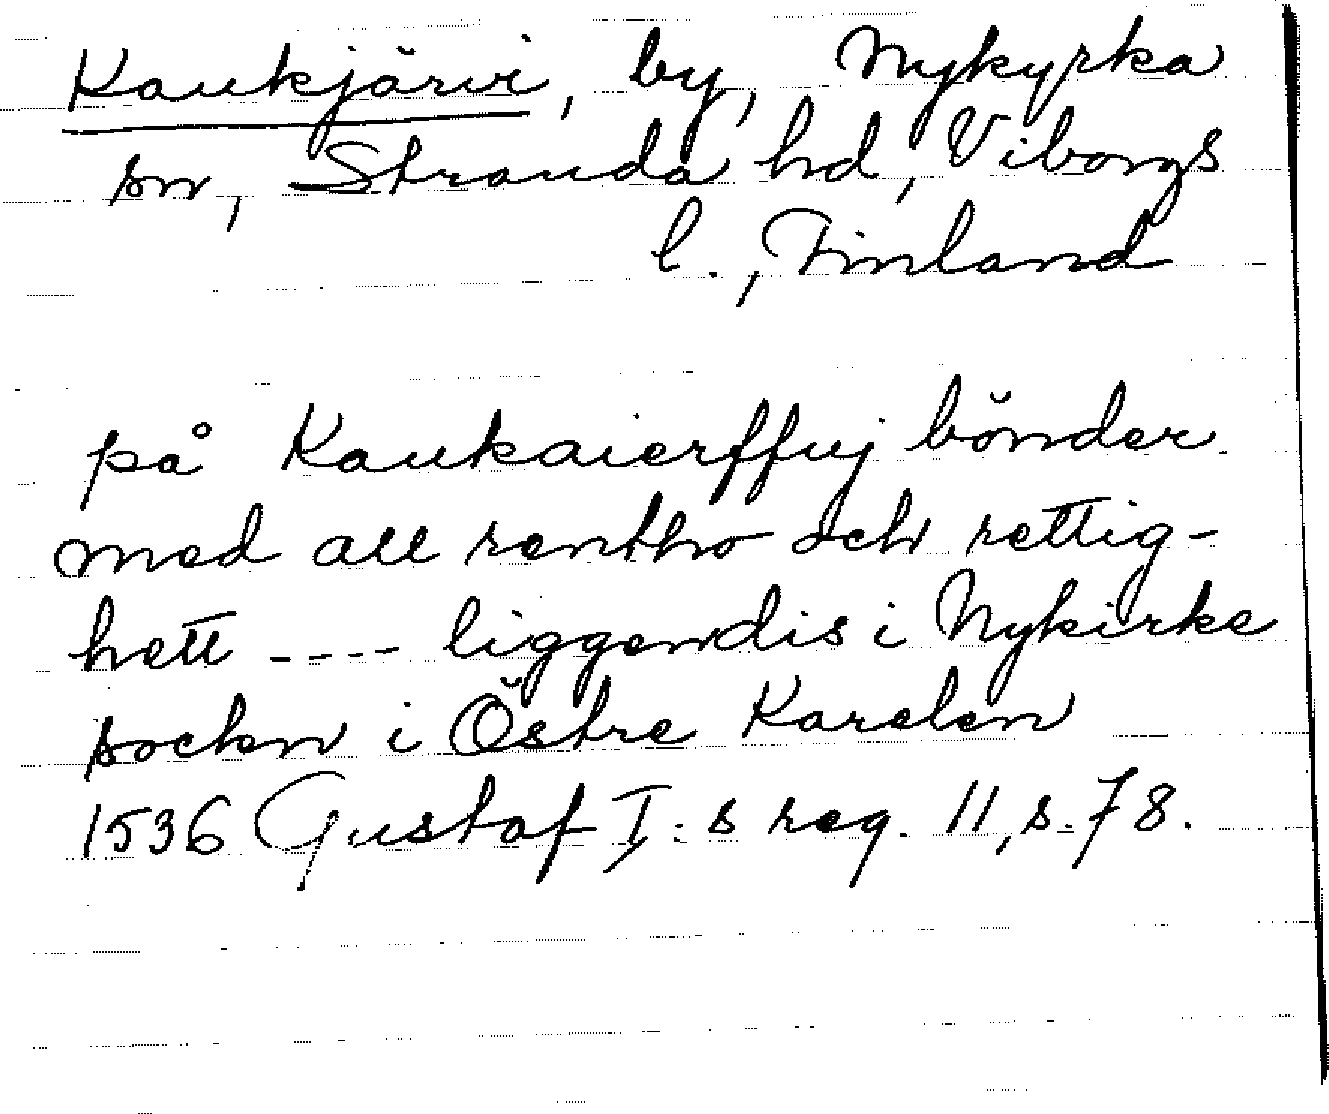 Kaukjärvi, by, Nykyrka
sn, Stranda hd, Viborgs
l., Finland
på Kaukaierffuj bönder
med all rentho och rettig-
hett ---- liggendis i Nykirke
socken i Östre Karelen
1536 Gustaf I:s reg. 11, s. 78.